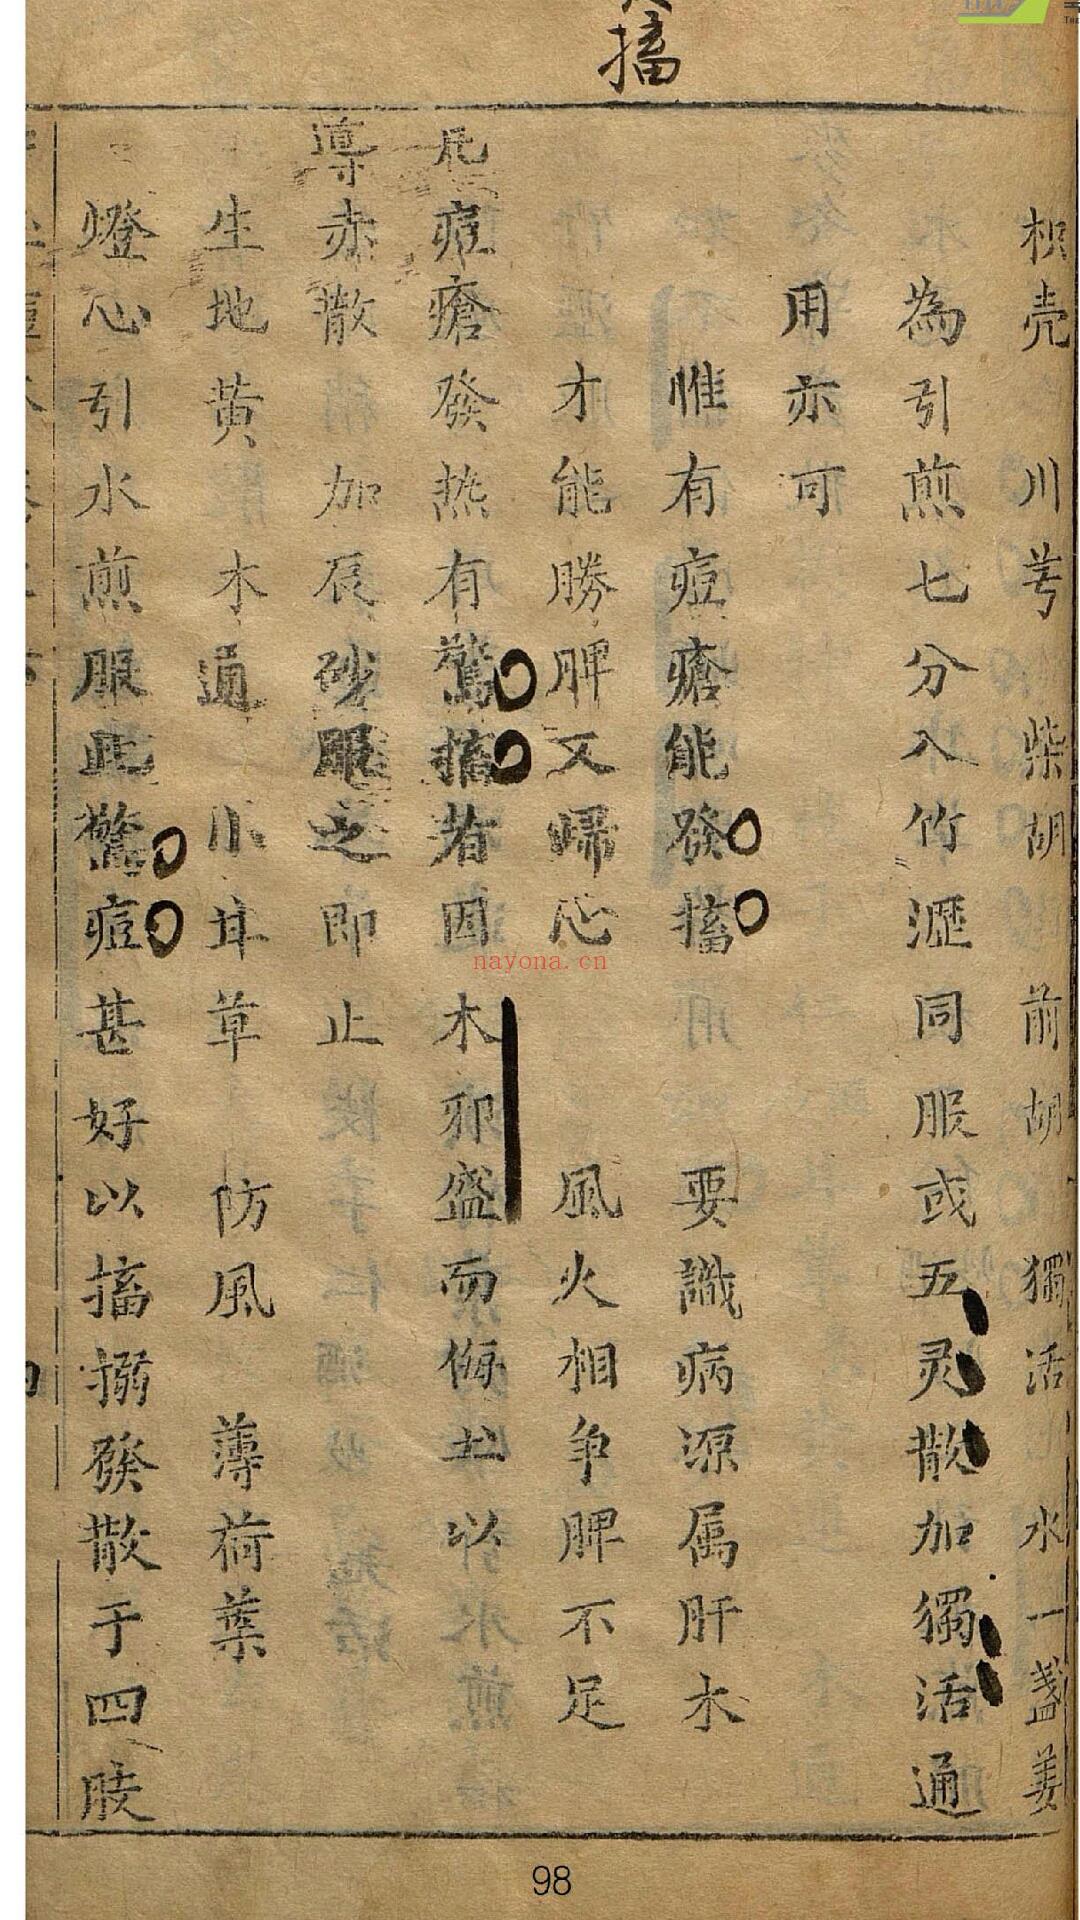 搐
枳壳 川芎 柴胡 前胡 獨活 水一盞姜
為引煎七分入竹瀝同服或五灵散加獨活通
用亦可
惟有痘瘡能發搐 要識病源属肝木
才能勝脾又歸心 風火相争脾不足
凡痘瘡發热有驚搐者因木邪盛而侮土以
導赤散 加辰砂服之即止
生地黄 木通 小甘草 防風 薄荷葉
燈心引水煎服此驚痘甚好以搐搦發散于四肢
nayona.cn
98